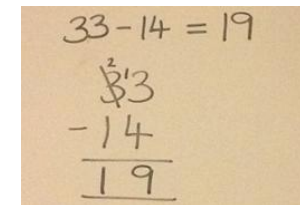 33 - 14 = 19
2 1
33
- 14
19